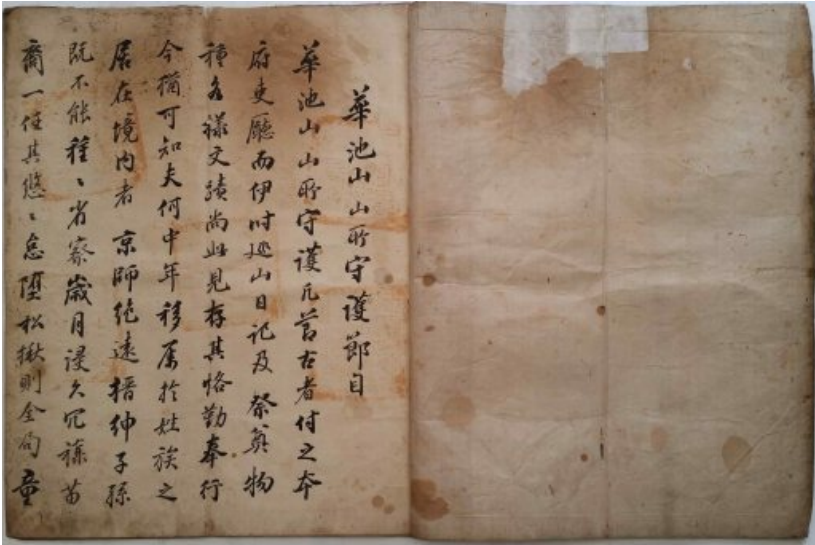 華池山山所守護節目
華池山山所守護凡營古者付之本
府吏廳而伊時巡山日記及祭奠物
種各樣文蹟尚此見存其恪勤奉行
今猶可知夫何中年移屬於姓族之
居在境内者京師絶遠搢紳子孫
既不能種〻省察歲月浸久冗裔苗
裔一任其悠〻怠墮松楸則全向童